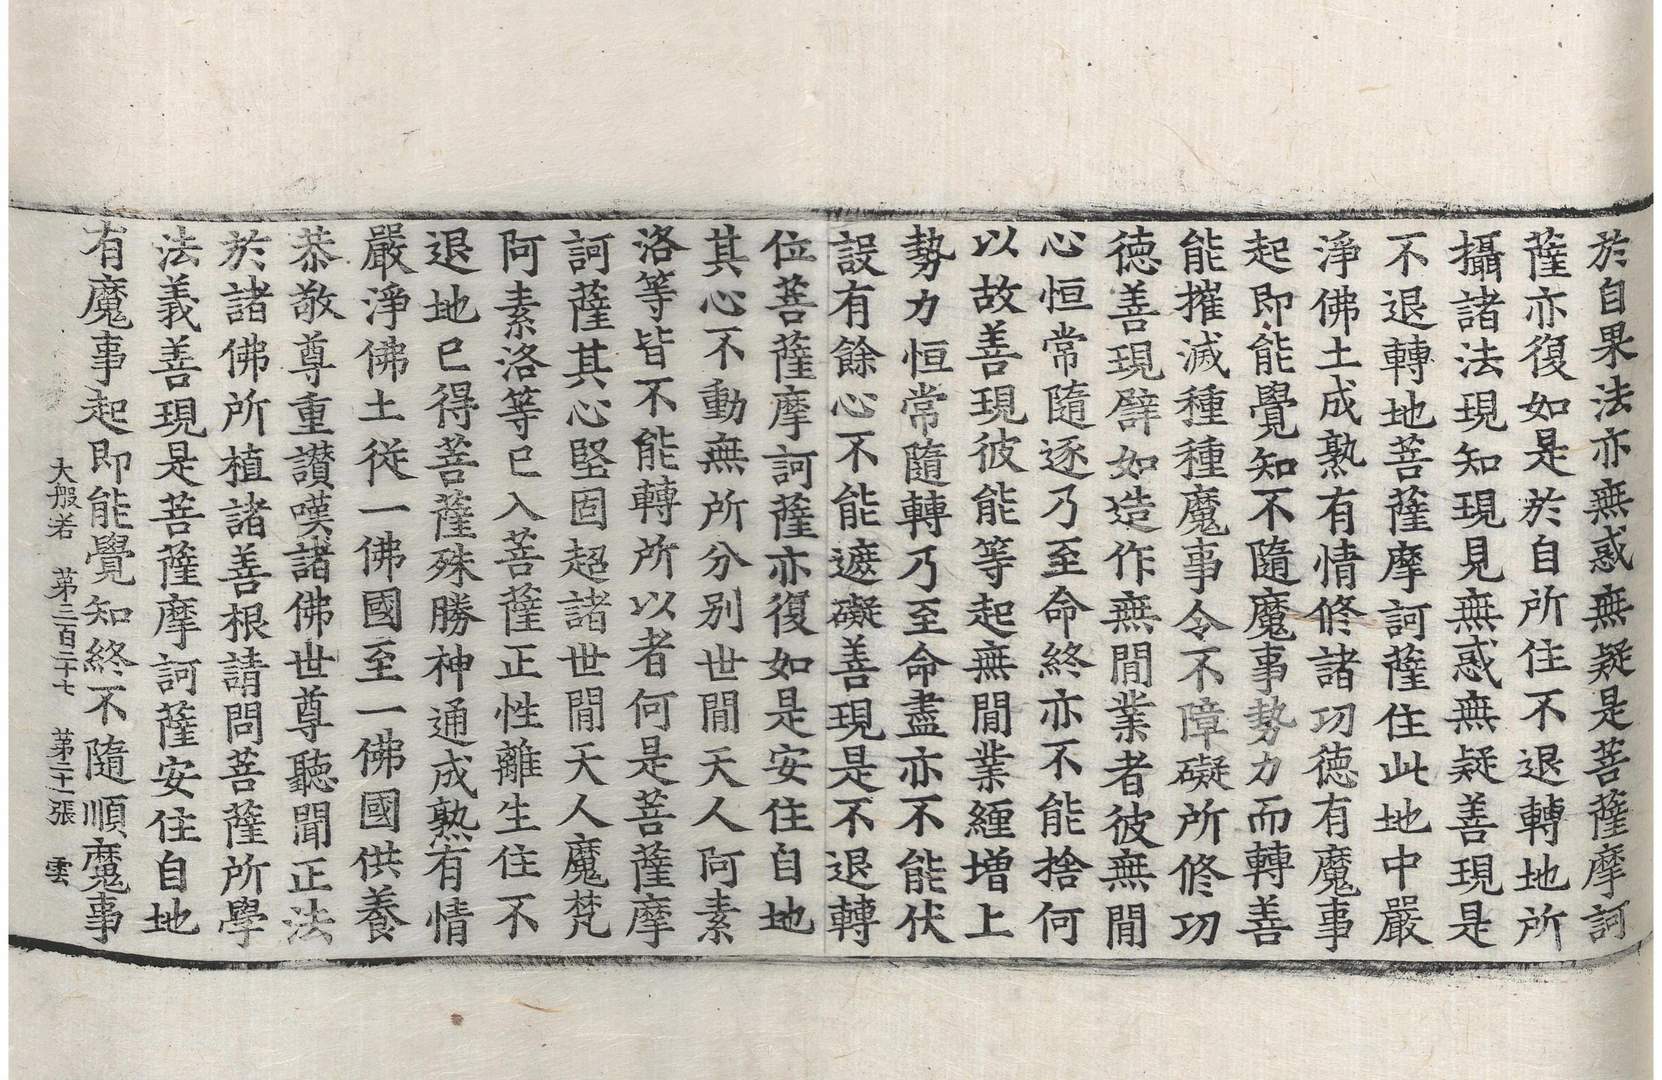 於自果法亦無惑無疑是菩薩摩訶
薩亦復如是於自所住不退轉地所
攝諸法現知現見無惑無疑善現是
不退轉地菩薩摩訶薩住此地中嚴
淨佛土成熟有情修諸功德有魔事
起即能覺知不隨魔事勢力而轉善
能摧滅種種魔事令不障礙所修功
德善現譬如造作無間業者彼無間
心恒常隨逐乃至命終亦不能捨何
以故善現彼能等起無間業纏增上
勢力恒常隨轉乃至命盡亦不能伏
設有餘心不能遮礙善現是不退轉
位菩薩摩訶薩亦復如是安住自地
其心不動無所分別世間天人阿素
洛等皆不能轉所以者何是菩薩摩
訶薩其心堅固超諸世間天人魔梵
阿素洛等已入菩薩正性離生住不
退地已得菩薩殊勝神通成熟有情
嚴淨佛土從一佛國至一佛國供養
恭敬尊重讚嘆諸佛世尊聽聞正法
於諸佛所植諸善根請問菩薩所學
法義善現是菩薩摩訶薩安住自地
有魔事起即能覺知終不隨順魔事
大般若 第三百二十七 第二十一張 雲